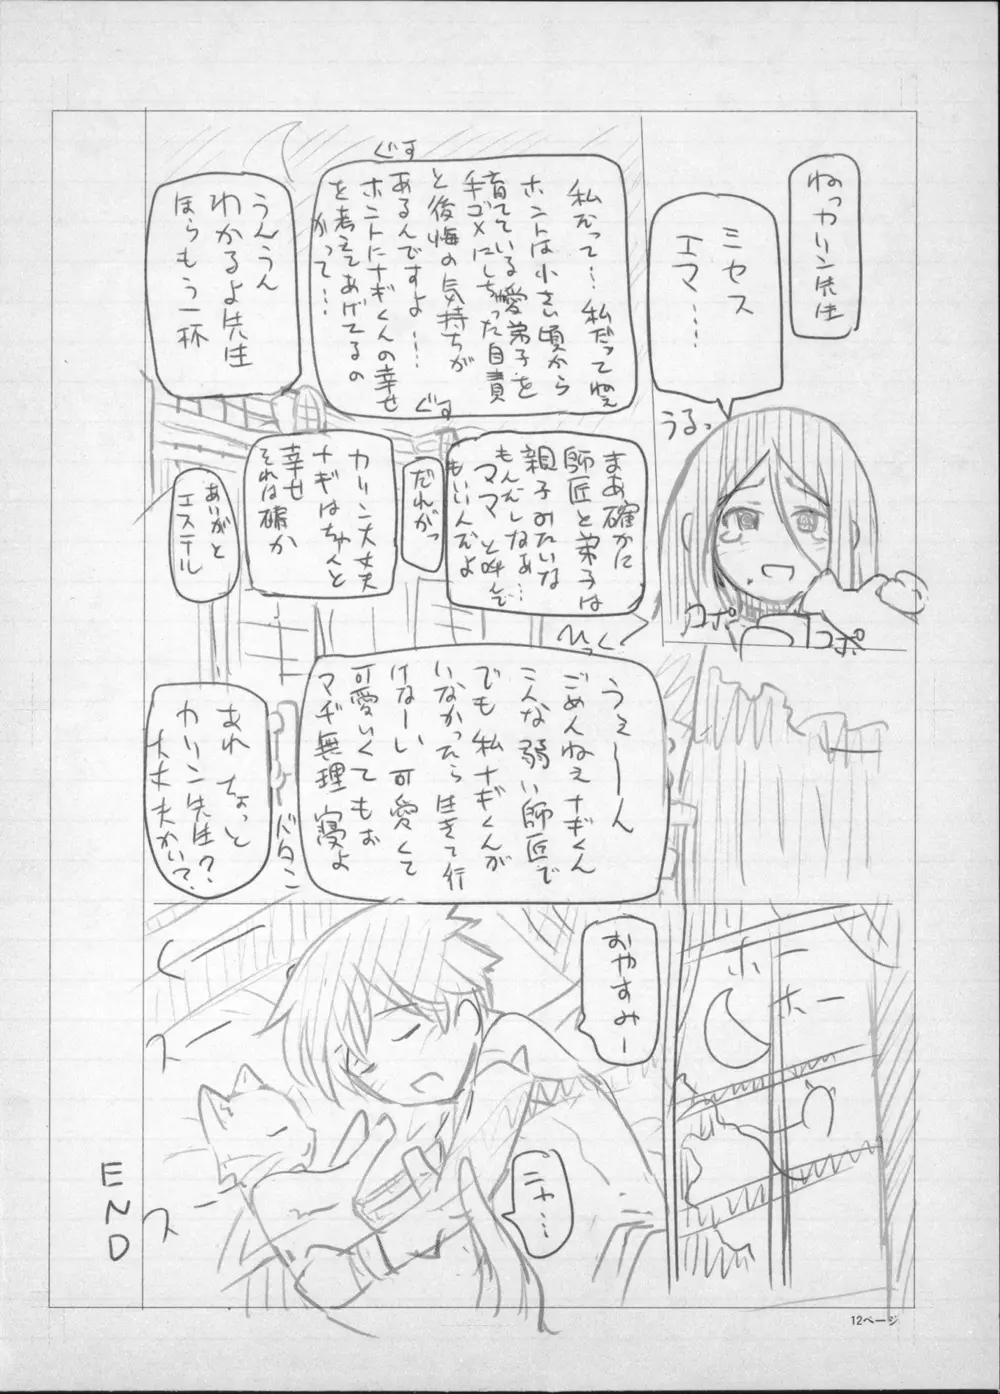 ねっカリン先生
ミセス
エマ……
うるっ
コポ
コポ
ぐす
私だって…私だってねぇ
ホントは小さい頃から
育てている愛弟子を
手ゴメにしちゃった自責
と後悔の気持ちが
あるんですよ……
ホントにナギくんの幸せ
を考えてあげてるの
かって……
ぐす
うんうん
わかるよ先生
ほらもう一杯
まあ確かに
師匠と弟子は
親子みたいな
もんだしなぁ…
ママと呼んで
もいいんだよ
だれがっ
カリン大丈夫
ナギはちゃんと
幸せ
それは確か
ありがと
エステル
ひっく
うぇーーん
ごめんねぇナギくん
こんな弱い師匠で
でも私ナギくんが
いなかったら生きて行
けなーい可愛くて
可愛いくてもぉ
マヂ無理寝よ
バタン
あれちょっと
カリン先生?
大丈夫かい?
ホー
ホー
おやすみー
ニャ…
スー
スー
END
12ページ